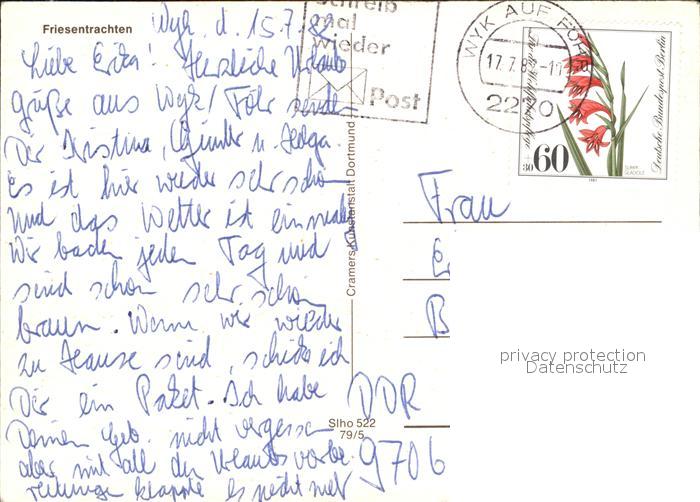 Friesentrachten
Wyk, d. 15.7.82
Liebe Erika! Herzliche Urlaubs
grüße aus Wyk/Föhr senden
Dir Kristina, Günter u. Helga.
Es ist hier wieder sehr schön
und das Wetter ist einmalig
Wir baden jeden Tag und
sind schon sehr schön
braun. Wenn wir wieder
zu Hause sind, schicke ich
Dir ein Paket. Ich habe
Deinen Geb. nicht vergessen
aber mit all den Urlaubs vorbe
reitungen klappte es nicht mehr
Schreib
mal
wieder
Post
WYK AUF FÖHR
17.7.82
2270
Deutsche Bundespost Berlin
60
GLADIOLE
1981
Cramers Kunstanstalt Dortmund
Slho 522
79/5
Frau
E
B
DDR
9706
privacy protection
Datenschutz